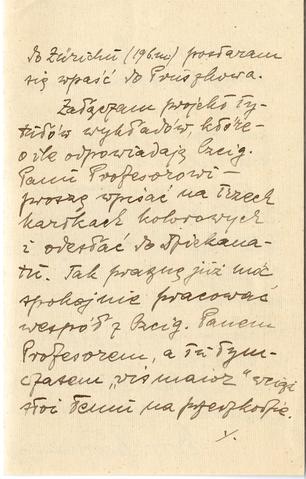 do Zürichu (196m) postaram
się wpaść do Pruszkowa.
Załączam projekt ty-
tułów wykładów, które -
o ile odpowiadają Czcig.
Panu Profesorowi -
proszę wpisać na trzech
kartkach kolorowych
i odesłać do Dziekana-
tu. Tak pragnę już móc
spokojnie pracować
wespół z Czcig. Panem
Profesorem, a tu tym-
czasem „vis maior" wciąż
stoi temu na przeszkodzie.